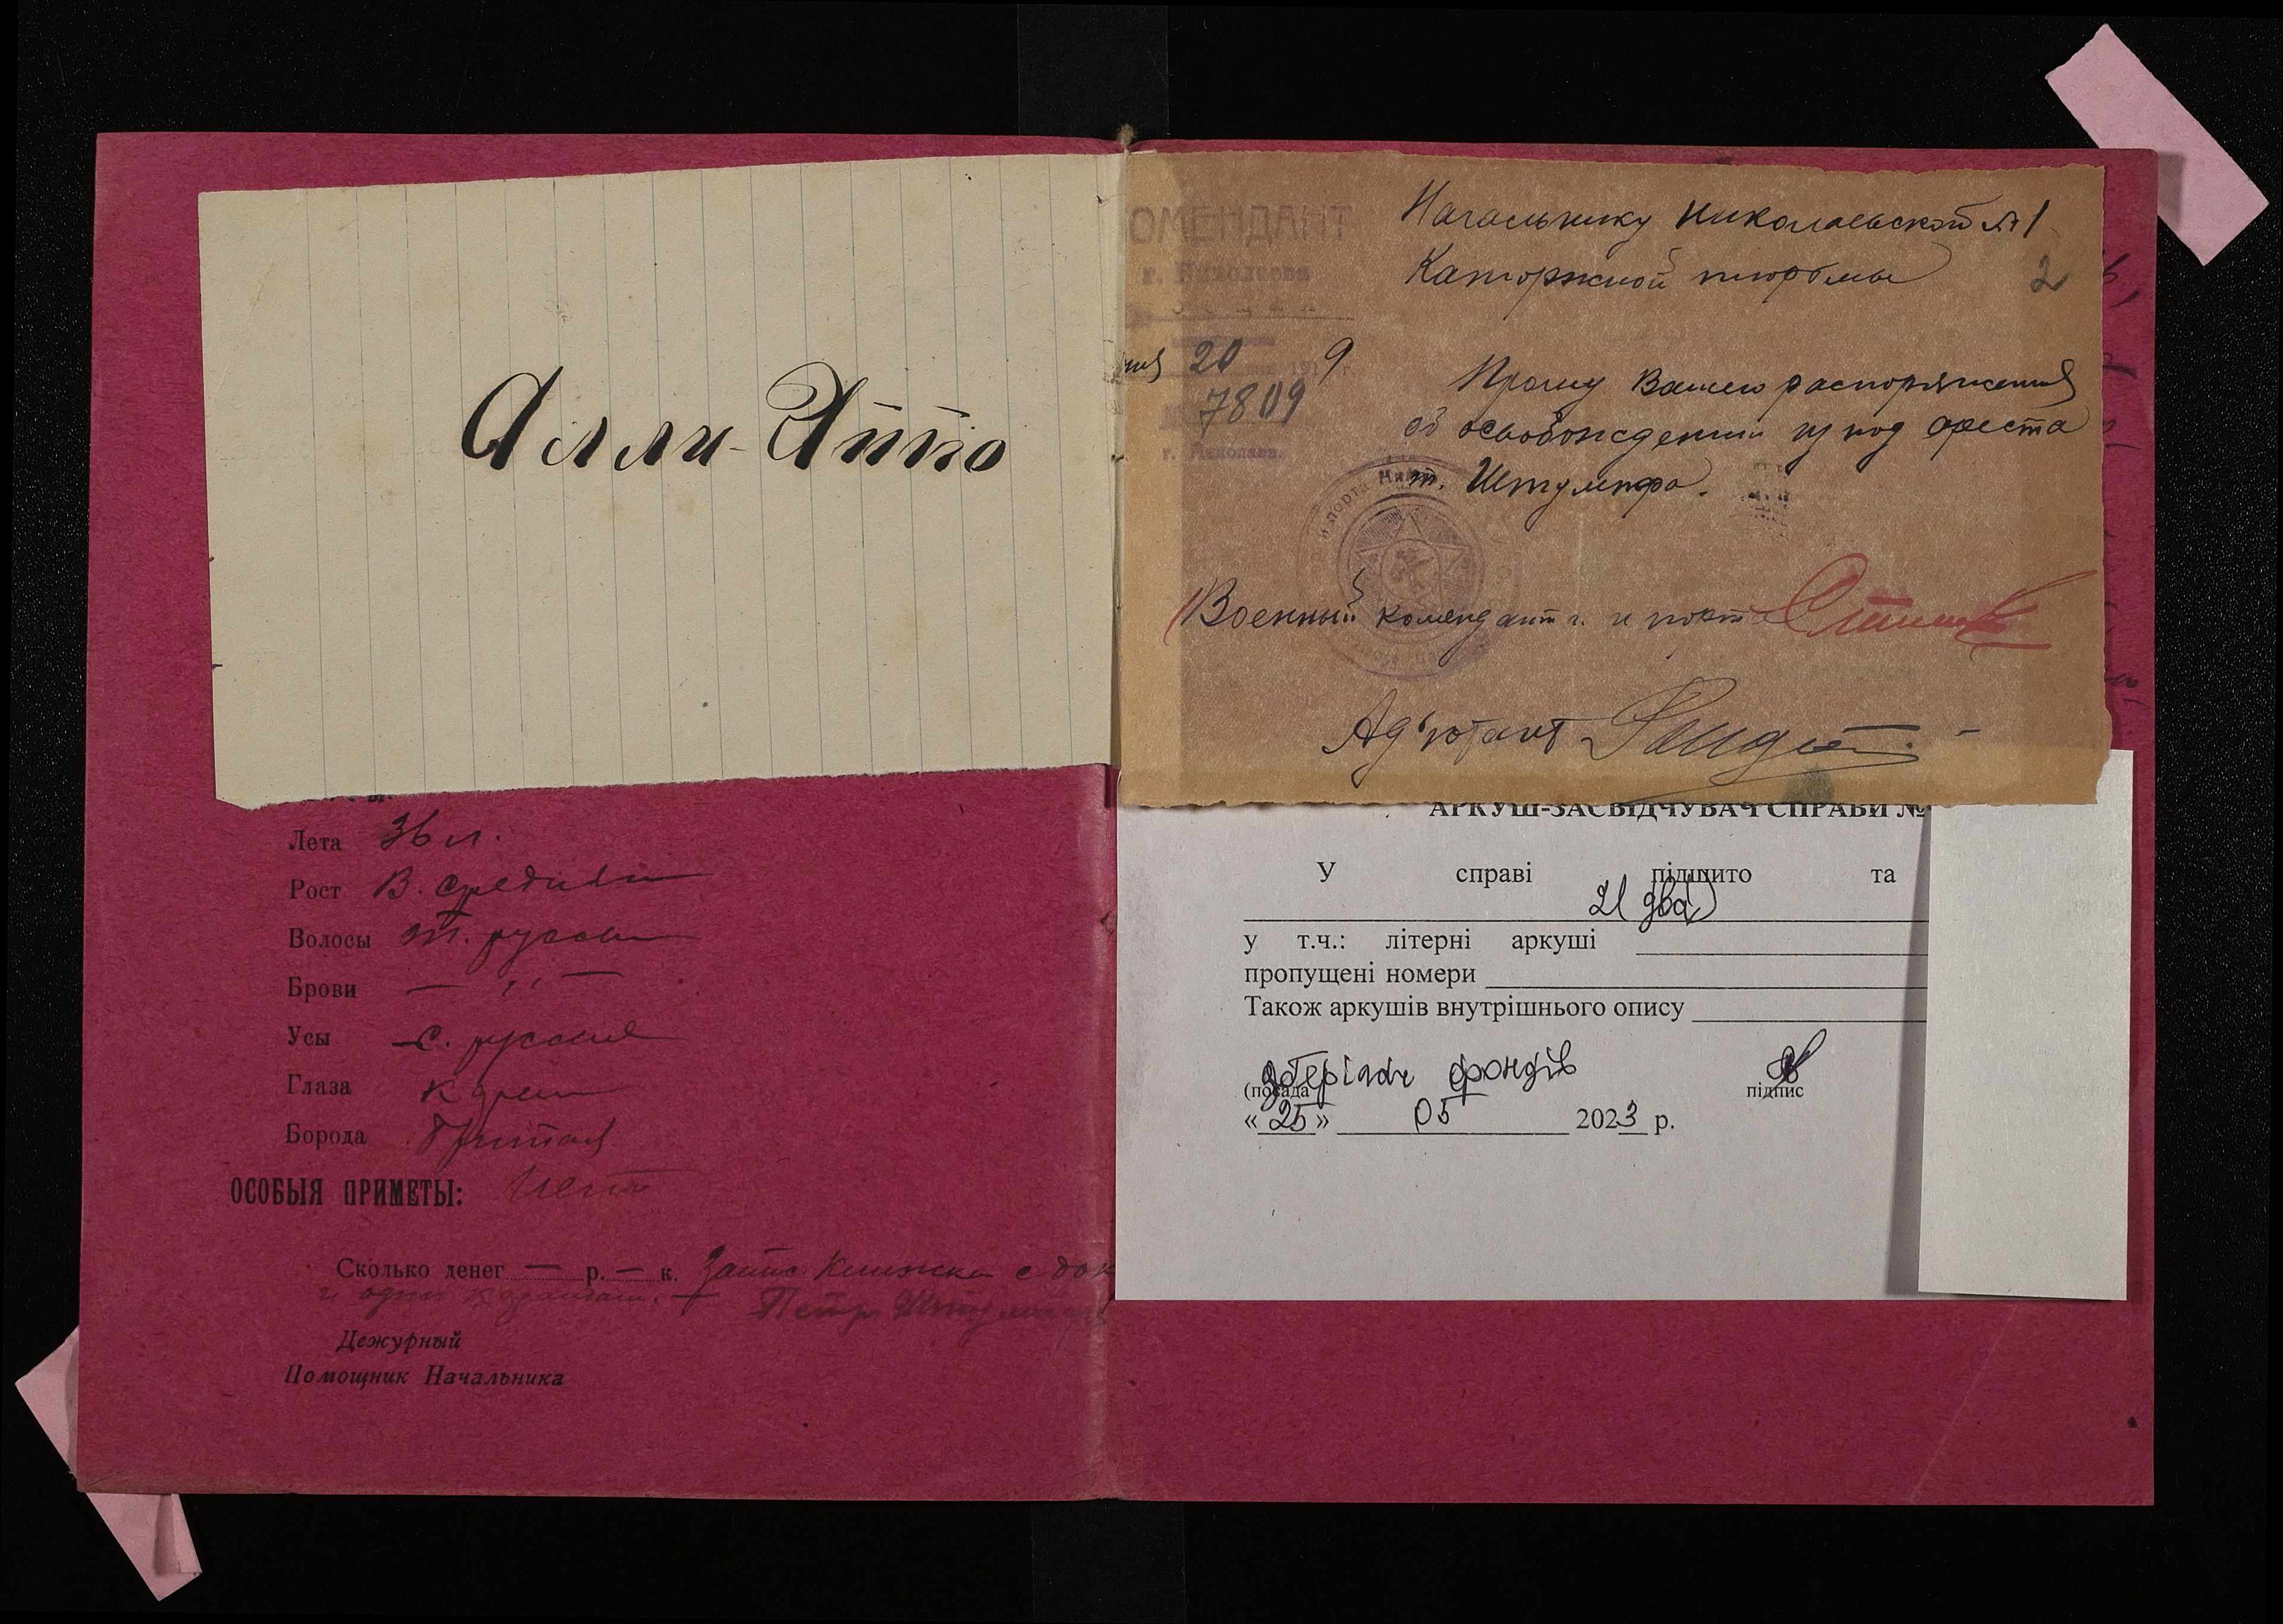 Алли-Этто
Лета 36 л.
Рост В. средняго
Волосы т. русые
Брови — ,, —
Усы с. русые
Глаза карие
Борода бритая
ОСОБЫЯ ПРИМЕТЫ: Нет
Сколько денег — р. — к. Запис. Книжка с док
и один карандаш.
Петр Штумпф
Дежурный
Помощник Начальника
ОМЕНДАНТ
г. Николаева
20 191 9 г.
7809
г. Николаев.
Начальнику Николаевской №1
Каторжной тюрьмы
2
Прошу Вашего распоряжения
об освобождении из под ареста
т. Штумпфа.
и порта Ник
Военный комендант г. и порта
Ад'ютант
АРКУШ-ЗАСВІДЧУВАЧ СПРАВИ №
У справі підшито та
2 (два)
у т.ч.: літерні аркуші
пропущені номери
Також аркушів внутрішнього опису
зберігач фондів
(посада підпис
« 25 » 05 2023 р.